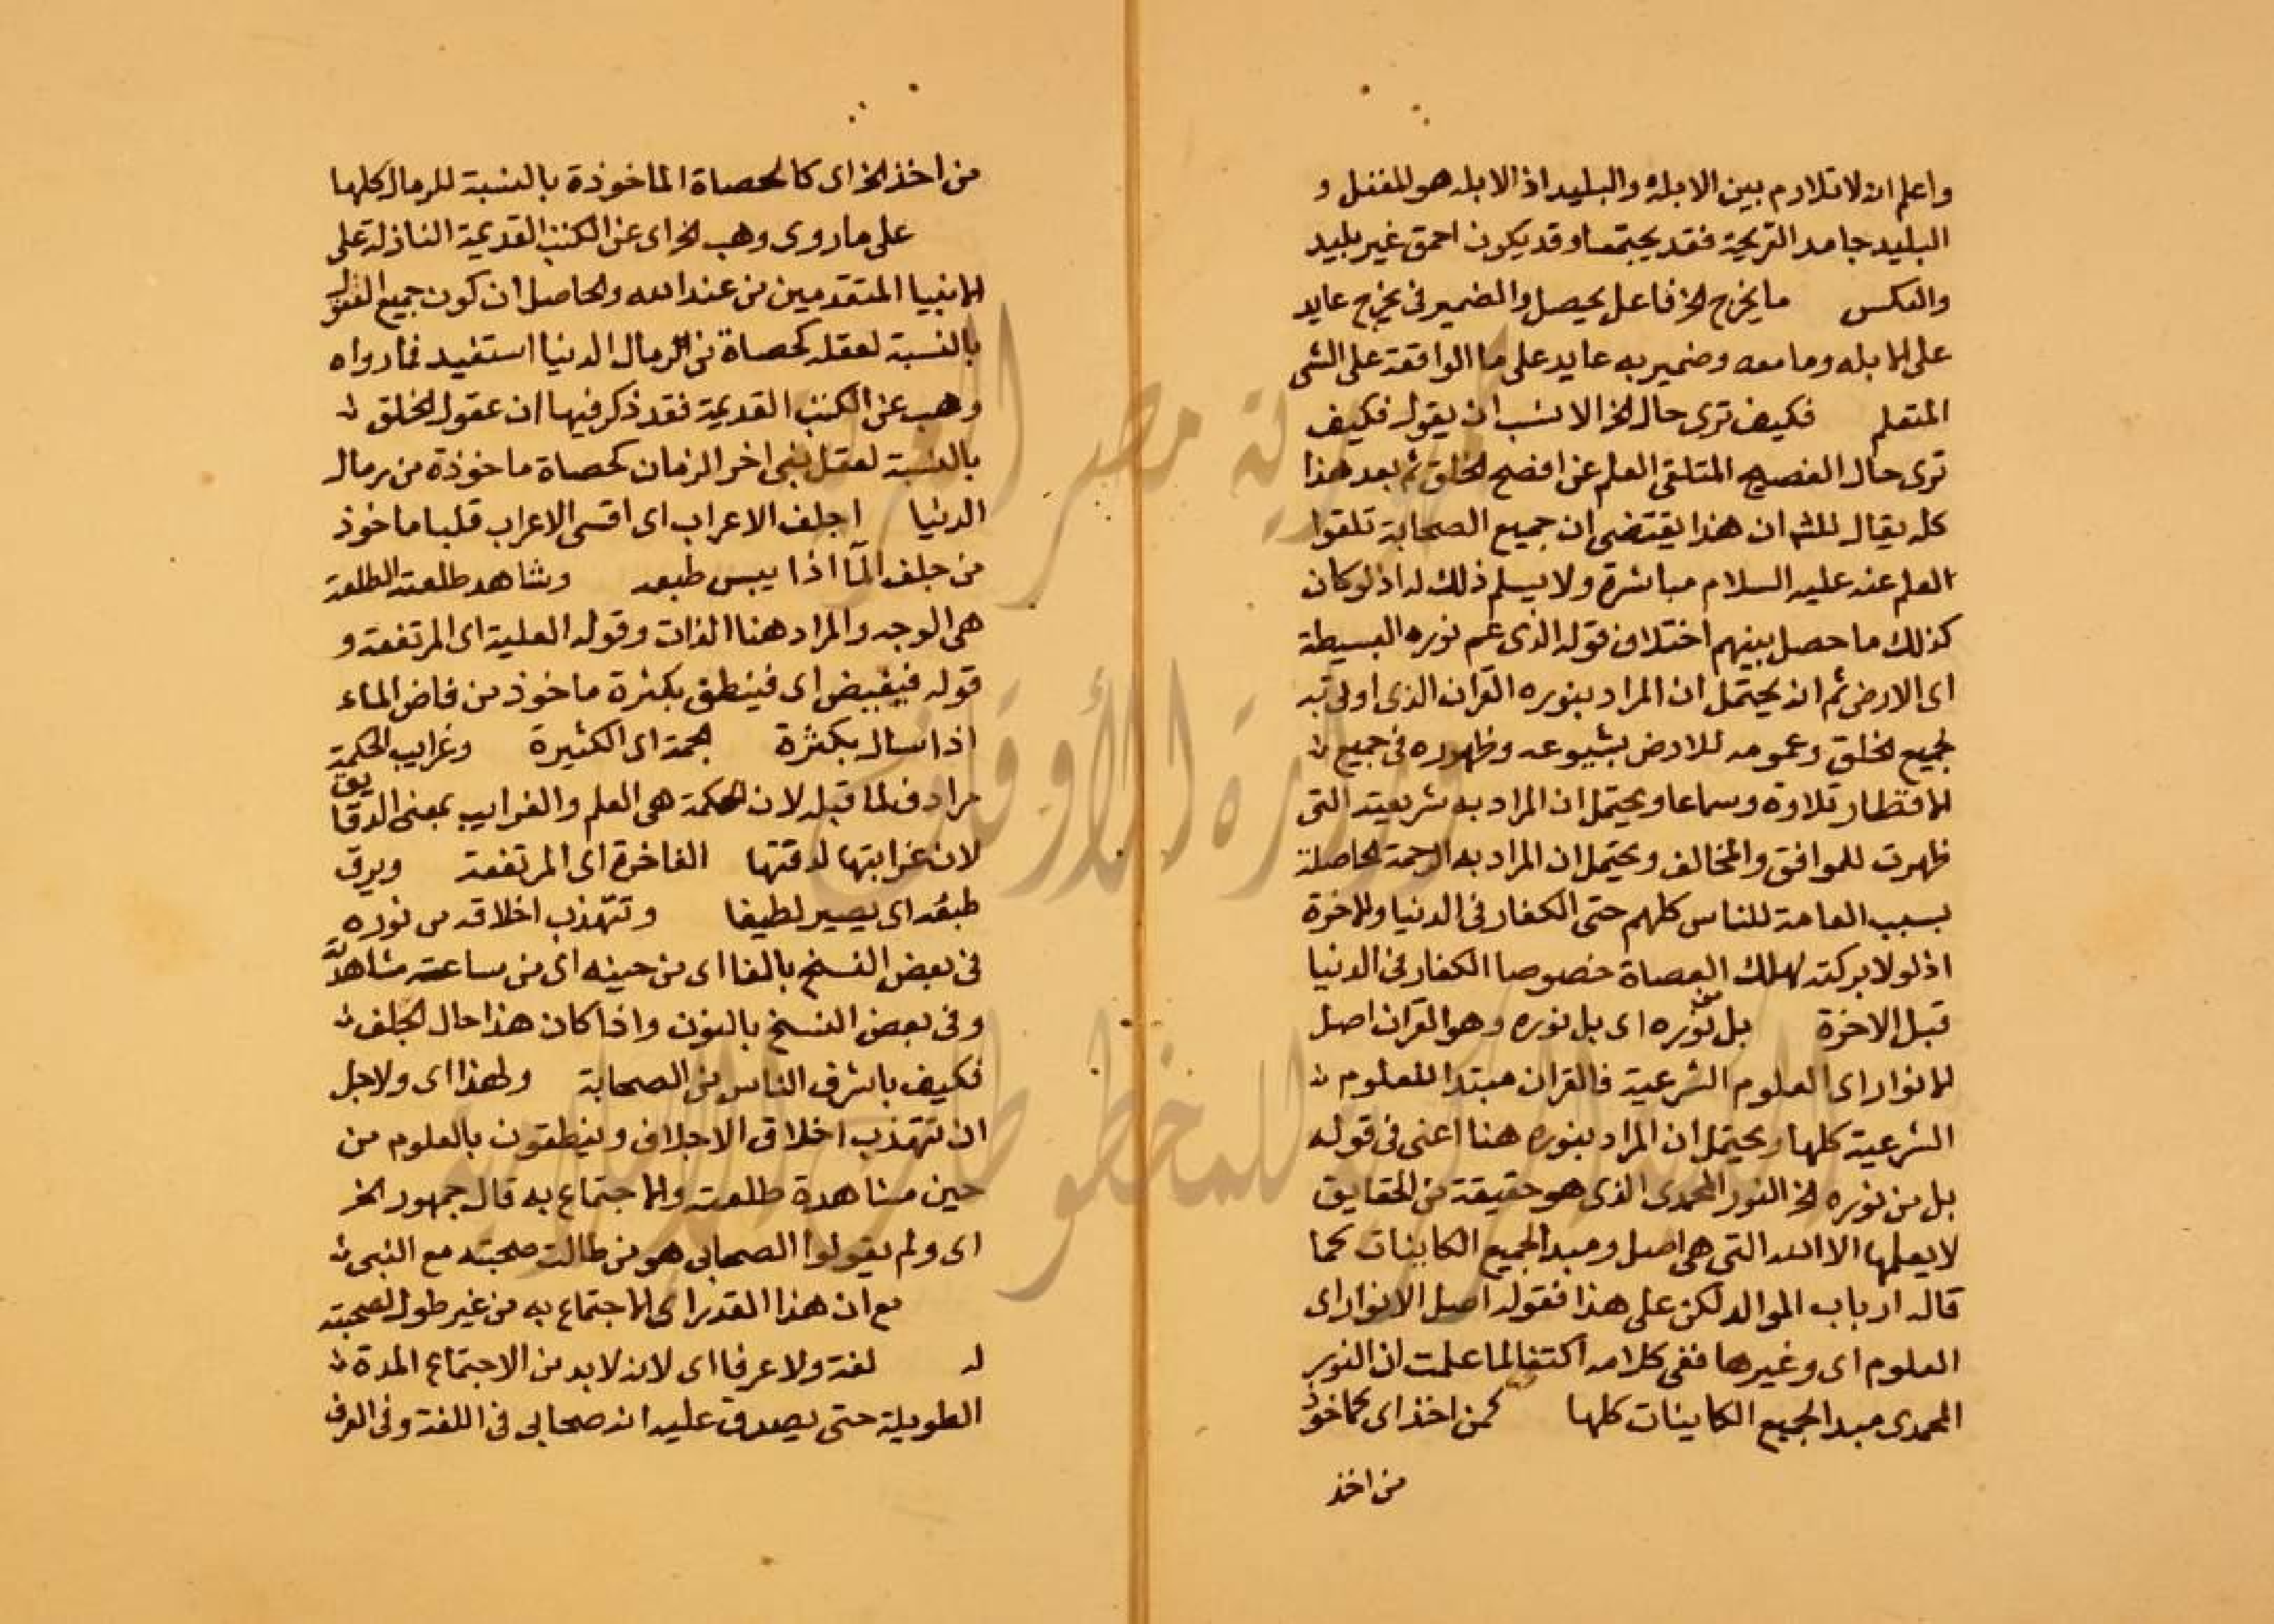 واعلم انه لا تلازم بين الابله والبليد اذ الابله هو المغفل و
البليد جامد القريحة فقد يجتمعا وقد يكون احمق غير بليد
والعكس ما يخرج الخ فاعل يحصل والضمير في يخرج عايد
على الابله وما معه وضمير به عايد على ما الواقعة على الشي
المتعلم فكيف ترى حال الخ الانسب ان يقول فكيف
ترى حال الفصيح المتلقى العلم عن افصح الخلق ثم بعد هذا
كله يقال للشه ان هذا يقتضى ان جميع الصحابة تلقوا
العلم عنه عليه السلام مباشرة ولا يسلم ذلك له اذ لو كان
كذلك ما حصل بينهم اختلاف قوله الذى عم نوره البسيطة
اى الارض ثم انه يحتمل ان المراد بنوره القران الذى اوتى به
لجميع الخلق وعمومه للارض بشيوعه وظهوره فى جميع
الاقطار تلاوة وسماعا ويحتمل ان المراد به شريعته التى
ظهرت للموافق والمخالف ويحتمل ان المراد به الرحمة الحاصلة
بسببه العامة للناس كلهم حتى الكفار فى الدنيا والاخرة
اذ لولا بركته لهلك العصاة خصوصا الكفار فى الدنيا
قبل الاخرة بل من نوره اى بل نوره وهو القران اصل
الانوار اى العلوم الشرعية فالقران مبتدا للعلوم
الشرعية كلها ويحتمل ان المراد بنوره هنا اعنى فى قوله
بل من نوره الخ النور المحمدى الذى هو حقيقة من الحقايق
لا يعلمها الا الله التى هى اصل ومبدا لجميع الكاينات كما
قاله ارباب الموالد لكن على هذا فقوله اصل الانوار اى
العلوم اى وغيرها ففى كلامه اكتفا لما علمت ان النور
المحمدى مبدا لجميع الكاينات كلها كمن اخذ اى كماخوذ
من اخذ
من اخذ الخ اى كالحصاة الماخوذة بالنسبة للرمال كلها
على ما روى وهب الخ اى عن الكتب القديمة النازلة على
الانبيا المتقدمين من عند الله والحاصل ان كون جميع العقول
بالنسبة لعقله كحصاة من الرمال الدنيا استفيد مما رواه
وهب عن الكتب القديمة فقد ذكر فيها ان عقول الخلق
بالنسبة لعقل نبى اخر الزمان كحصاة ماخوذة من رمال
الدنيا اجلف الاعراب اى اقسى الاعراب قلبا ماخوذ
من جلف اذا يبس طبعه وشاهد طلعته الطلعة
هى الوجه والمراد هنا الذات وقوله العلية اى المرتفعة و
قوله فيفيض اى فينطق بكثرة ماخوذ من فاض الماء
اذا سال بكثرة بجمة اى الكثيرة وغرايب الحكمة
مرادف لما قبله لان الحكمة هى العلم والغرايب بمعنى الدقايق
لان غرابتها لدقتها الفاخرة اى المرتفعة ويرق
طبعه اى يصير لطيفا وتتهذب اخلاقه من نوره
فى بعض النسخ بالفا اى من حينه اى من ساعته مشاهدته
وفى بعض النسخ بالنون واذا كان هذا حال الجلف
فكيف باشرف الناس من الصحابة ولهذا اى ولاجل
ان تتهذب اخلاق الاجلاف وينطقون بالعلوم من
حين مشاهدة طلعته والاجتماع به قال جمهور الخ
اى ولم يقولوا الصحابى هو من طالت صحبته مع النبى
مع ان هذا القدر اى الاجتماع به من غير طول لصحبته
له لغة ولا عرفا اى لانه لابد من الاجتماع المدة
الطويلة حتى يصدق عليه انه صحابى فى اللغة وفى العرف